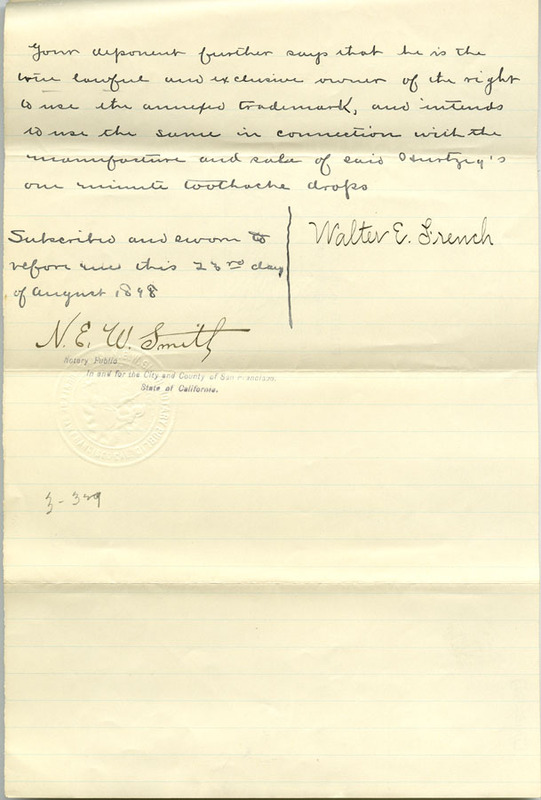 Your deponent further says that he is the
true lawful and exclusive owner of the right
to use the annexed trademark, and intends
to use the same in connection with the
manufacture and sale of said
one minute toothache drops
Subscribed and sworn to
before me this 23rd day
of August 1898
Walter E. French
N. E. W. Smith
Notary Public
In and for the City and County of San Francisco,
State of California.
3-329